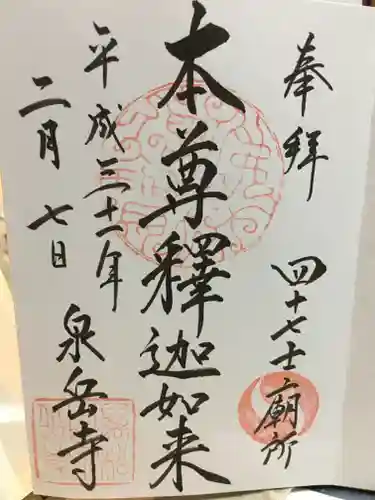 奉拝
四十七士廟所
本尊釋迦如来
平成三十一年
二月七日
泉岳寺